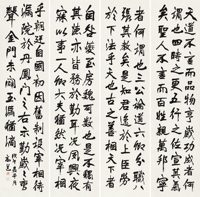 天道不言而品物亨歲功成者何
謂也四時之吏五行之佐宣其氣
矣聖人不言而百姓親萬邦寧
者何謂也三公論道六卿分職
張其教矣是知君逸於上臣
勞於下法乎天也古之善相天下者
自咎夔至房魏可數也是不獨有
其德亦皆務於勤耳夙興夜
寐以事一人卿大夫猶然況宰相
乎朝廷自國初因舊制設宰相待
漏院於
聲金門未闢玉漏猶滴